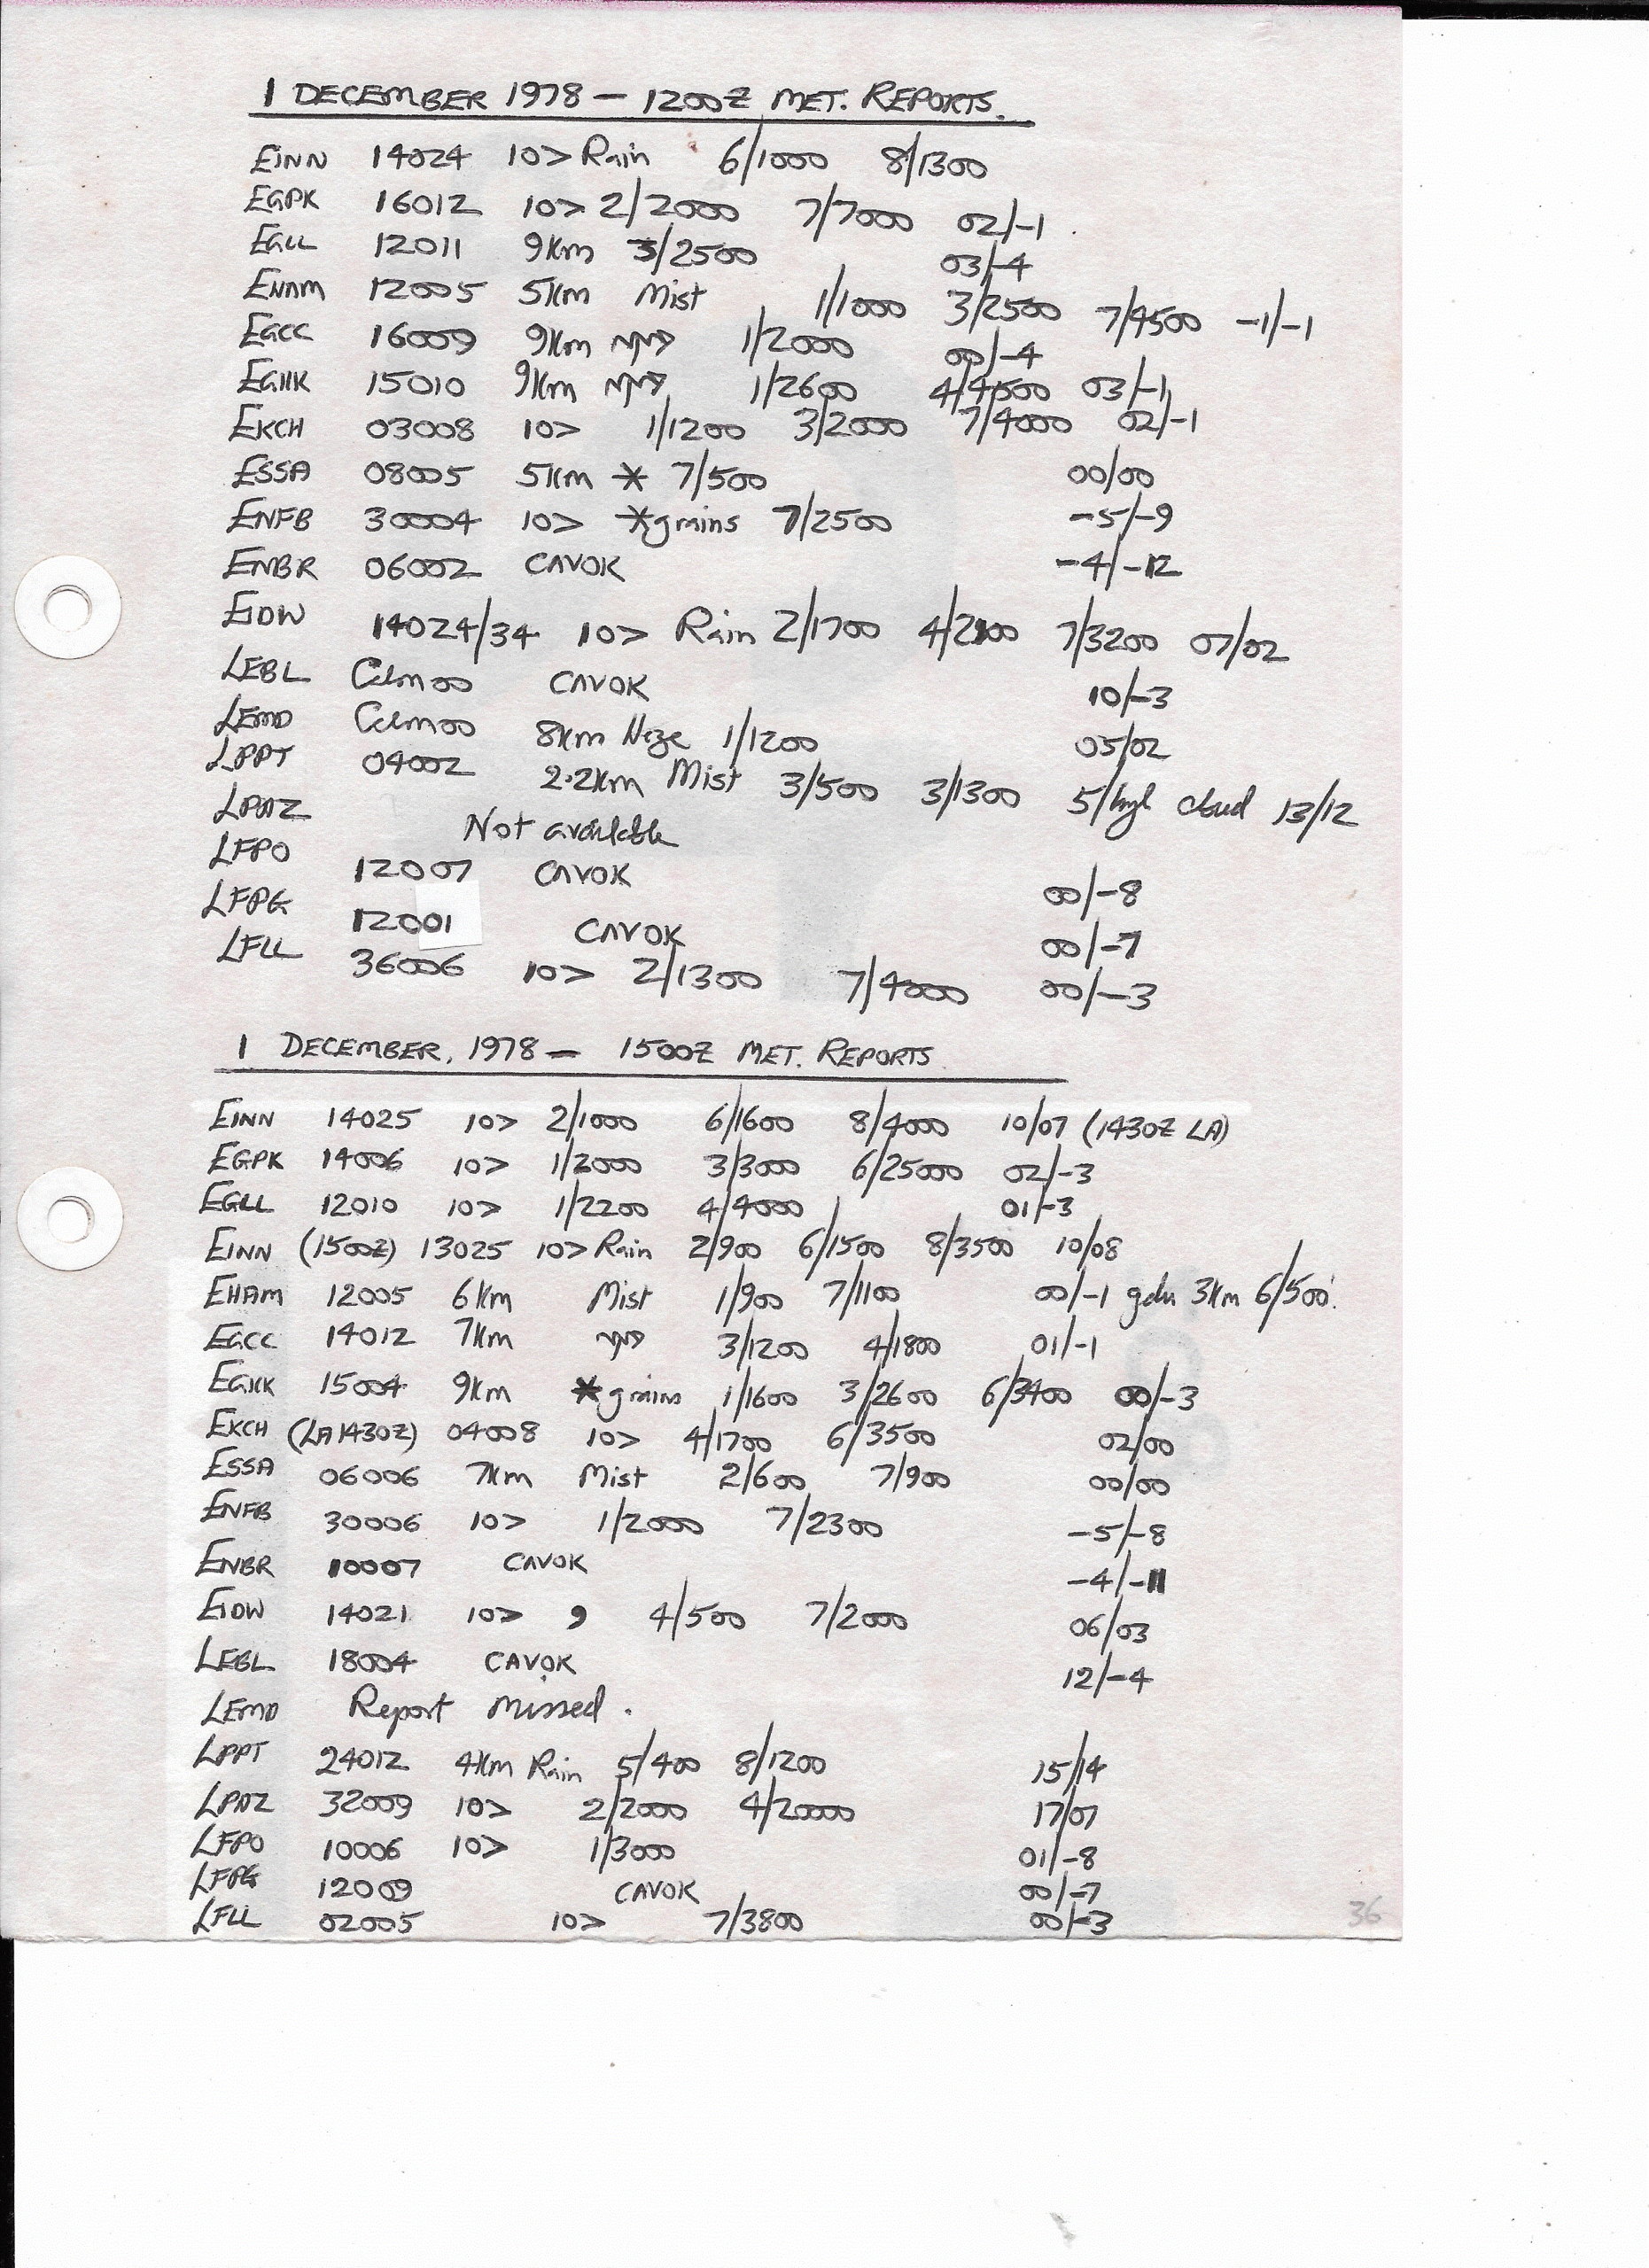 1 DECEMBER 1978 — 1200Z MET. REPORTS.
EINN 14024 10> Rain 6/1000 8/1300
EGPK 16012 10> 2/2000 7/7000 02/-1
EGLL 12011 9Km 3/2500 03/-4
EHAM 12005 5Km Mist 1/1000 3/2500 7/4500 -1/-1
EGCC 16009 9Km 1/2000 00/-4
EGKK 15010 9Km 1/2600 4/4500 03/-1
EKCH 03008 10> 1/1200 3/2000 7/4000 02/-1
ESSA 08005 5Km * 7/500 00/00
ENFB 30004 10> *grains 7/2500 -5/-9
ENBR 06002 CAVOK -4/-12
EIDW 14024/34 10> Rain 2/1700 4/2100 7/3200 07/02
LEBL Calm 00 CAVOK 10/-3
LEMD Calm 00 8Km Haze 1/1200 05/02
LPPT 04002 2.2Km Mist 3/500 3/1300 5/high cloud 13/12
LPAZ Not available
LFPO 12007 CAVOK 00/-8
LFPG 12001 CAVOK 00/-7
LFLL 36006 10> 2/1300 7/4000 00/-3
1 DECEMBER, 1978 — 1500Z MET. REPORTS
EINN 14025 10> 2/1000 6/1600 8/4000 10/07 (1430Z LA)
EGPK 14006 10> 1/2000 3/3000 6/25000 02/-3
EGLL 12010 10> 1/2200 4/4000 01/-3
EINN (1500Z) 13025 10> Rain 2/900 6/1500 8/3500 10/08
EHAM 12005 6Km Mist 1/900 7/1100 00/-1 gdu 3Km 6/500.
EGCC 14012 7Km 3/1200 4/1800 01/-1
EGKK 15004 9Km *grains 1/1600 3/2600 6/3400 00/-3
EKCH (LA 1430Z) 04008 10> 4/1700 6/3500 02/00
ESSA 06006 7Km Mist 2/600 7/900 00/00
ENFB 30006 10> 1/2000 7/2300 -5/-8
ENBR 10007 CAVOK -4/-11
EIDW 14021 10> , 4/500 7/2000 06/03
LEBL 18004 CAVOK 12/-4
LEMD Report missed.
LPPT 24012 4Km Rain 5/400 8/1200 15/14
LPAZ 32009 10> 2/2000 4/20000 17/07
LFPO 10006 10> 1/3000 01/-8
LFPG 12009 CAVOK 00/-7
LFLL 02005 10> 7/3800 00/-3
36